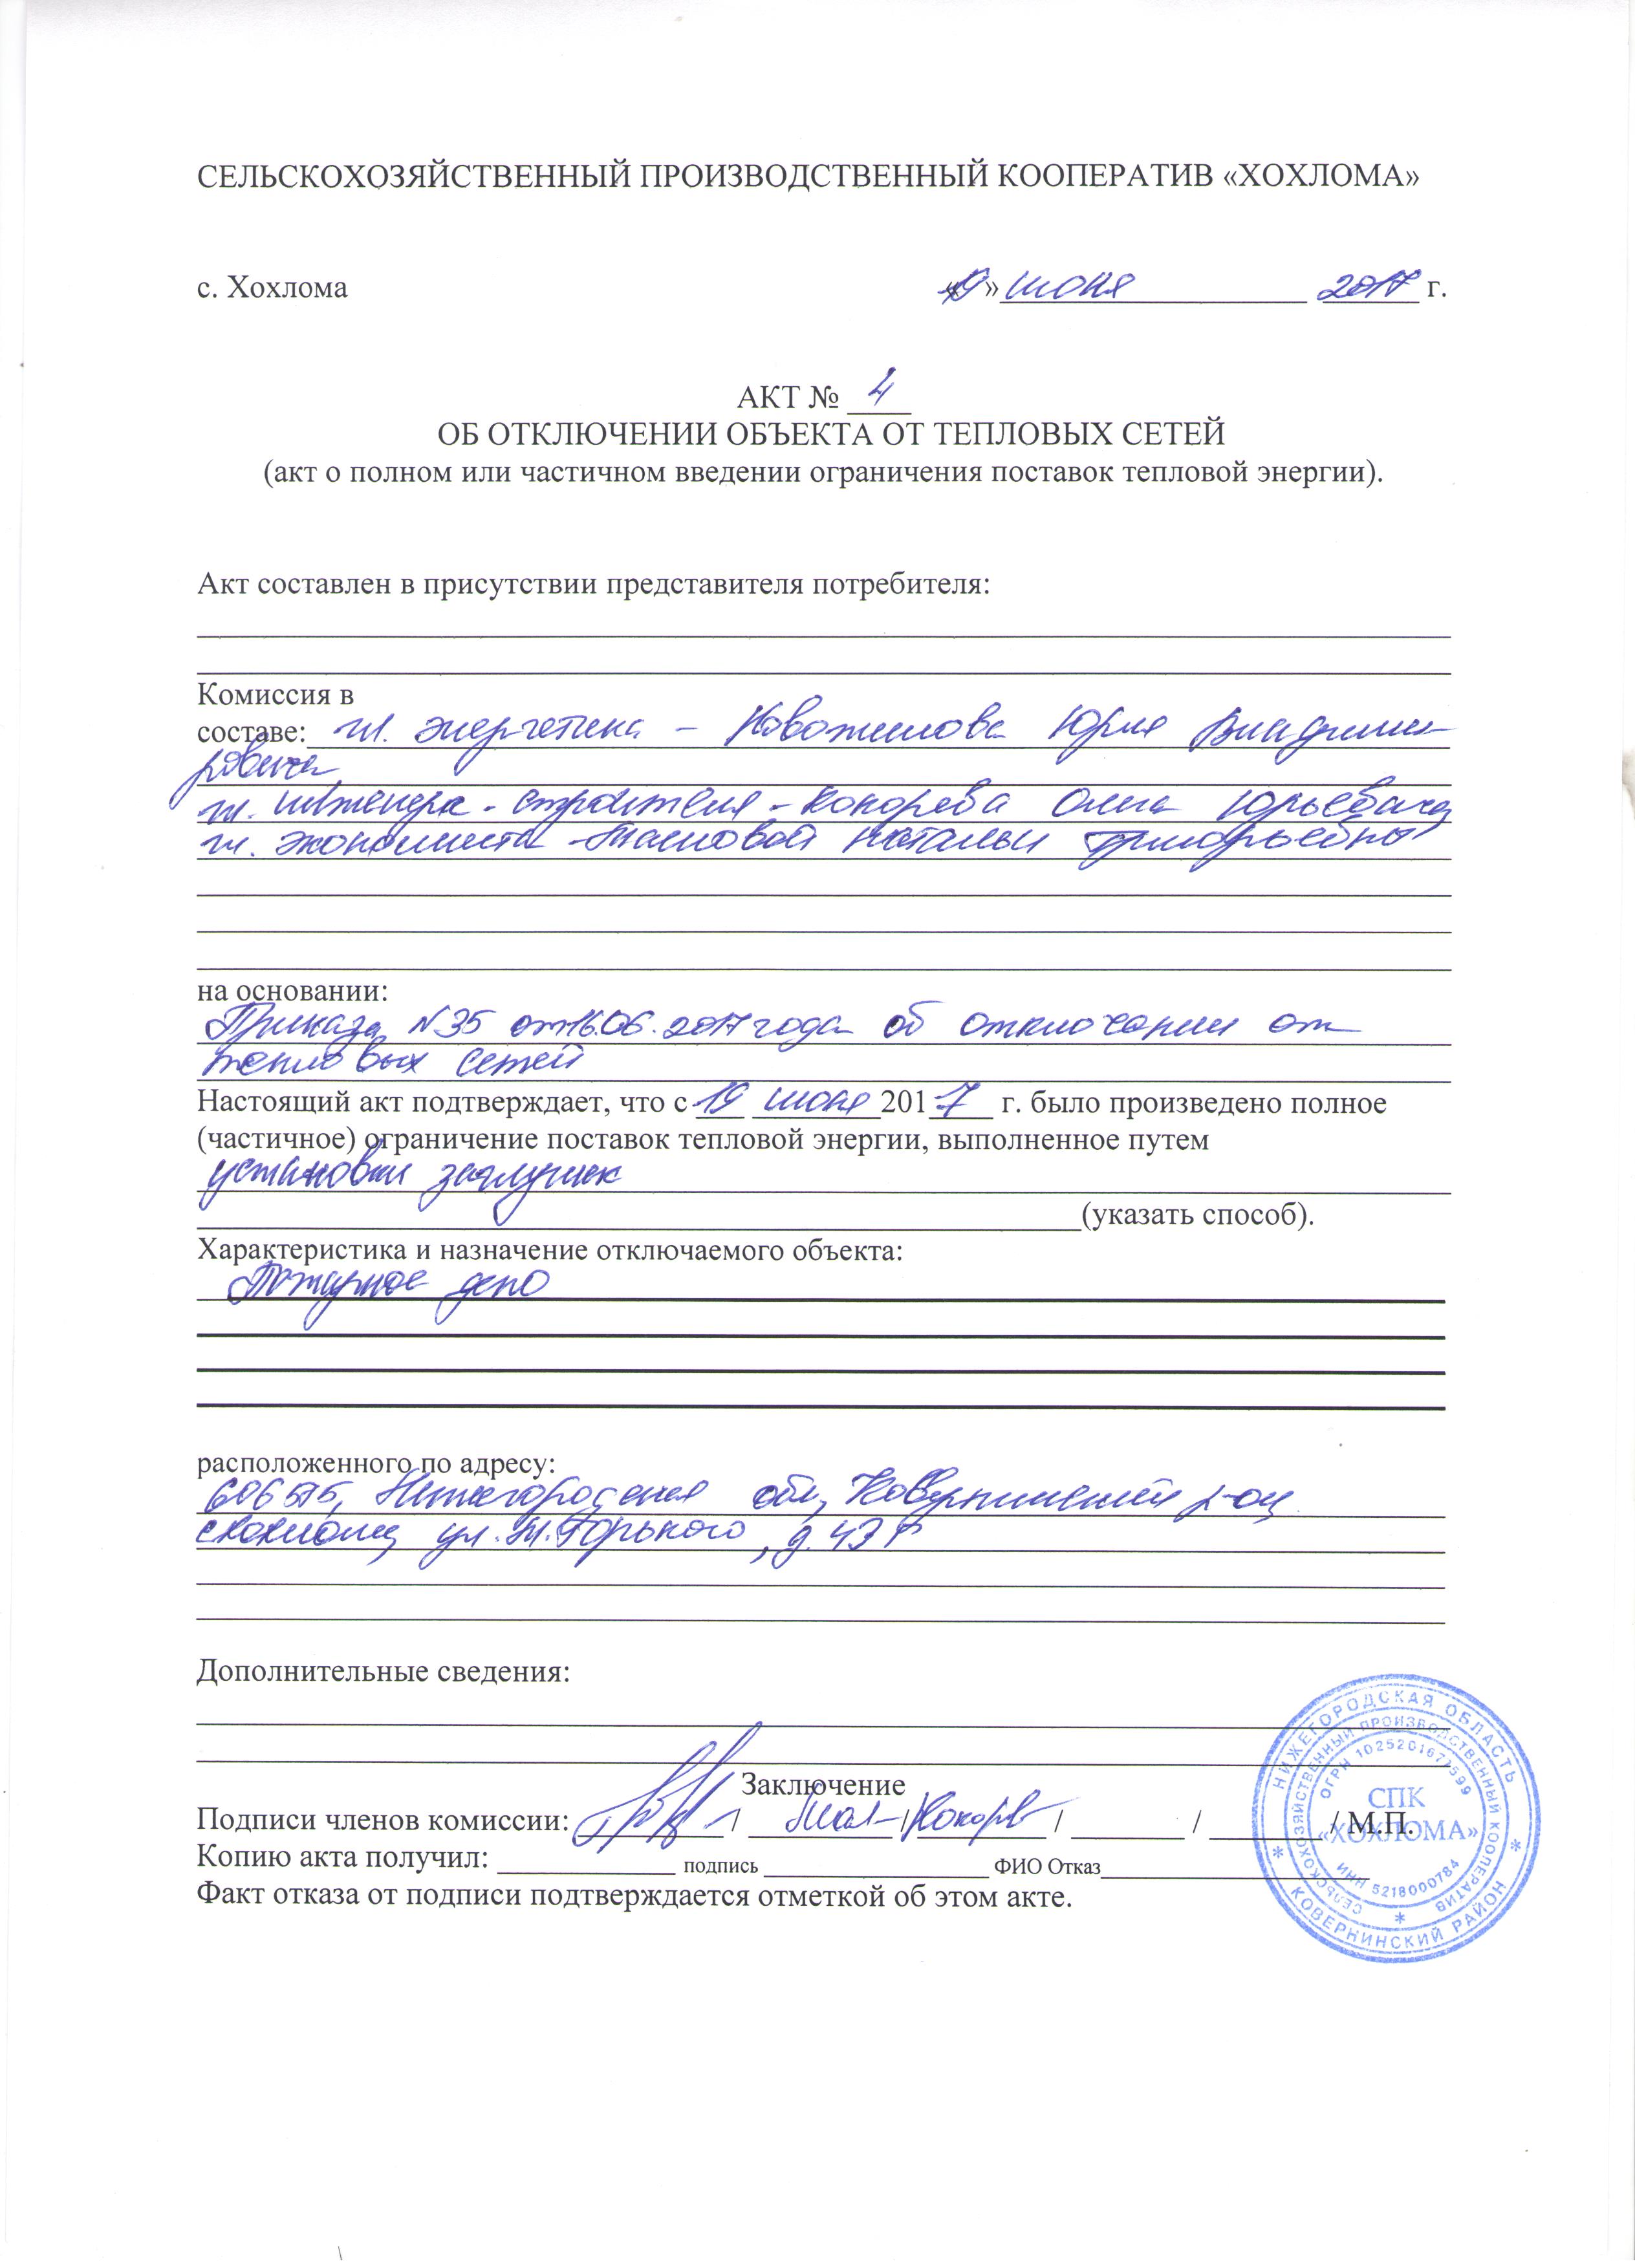 СЕЛЬСКОХОЗЯЙСТВЕННЫЙ ПРОИЗВОДСТВЕННЫЙ КООПЕРАТИВ «ХОХЛОМА»
с. Хохлома «19» июня 2017 г.
АКТ № 4
ОБ ОТКЛЮЧЕНИИ ОБЪЕКТА ОТ ТЕПЛОВЫХ СЕТЕЙ
(акт о полном или частичном введении ограничения поставок тепловой энергии).
Акт составлен в присутствии представителя потребителя:
Комиссия в
составе: гл. энергетика - Новожилова Юрия Владими-
ровича
гл. инженера - строителя - Кокорева Олега Юрьевича
гл. экономиста Натальи Григорьевны
на основании:
Приказа N35 от 16.06.2017 года об отключении от
тепловых сетей
Настоящий акт подтверждает, что с 19 июня 2017 г. было произведено полное
(частичное) ограничение поставок тепловой энергии, выполненное путем
установки заглушек
(указать способ).
Характеристика и назначение отключаемого объекта:
Пожарное депо
расположенного по адресу:
Нижегородская обл, Ковернинский р-он
с.Хохлома, ул. М.Горького, д. 43
Дополнительные сведения:
Заключение
Подписи членов комиссии: / / Кокорев / / / М.П.
Копию акта получил: подпись ФИО Отказ
Факт отказа от подписи подтверждается отметкой об этом акте.
НИЖЕГОРОДСКАЯ ОБЛАСТЬ
КОВЕРНИНСКИЙ РАЙОН
СЕЛЬСКОХОЗЯЙСТВЕННЫЙ ПРОИЗВОДСТВЕННЫЙ КООПЕРАТИВ
ОГРН
СПК
«ХОХЛОМА»
ИНН 5218000784